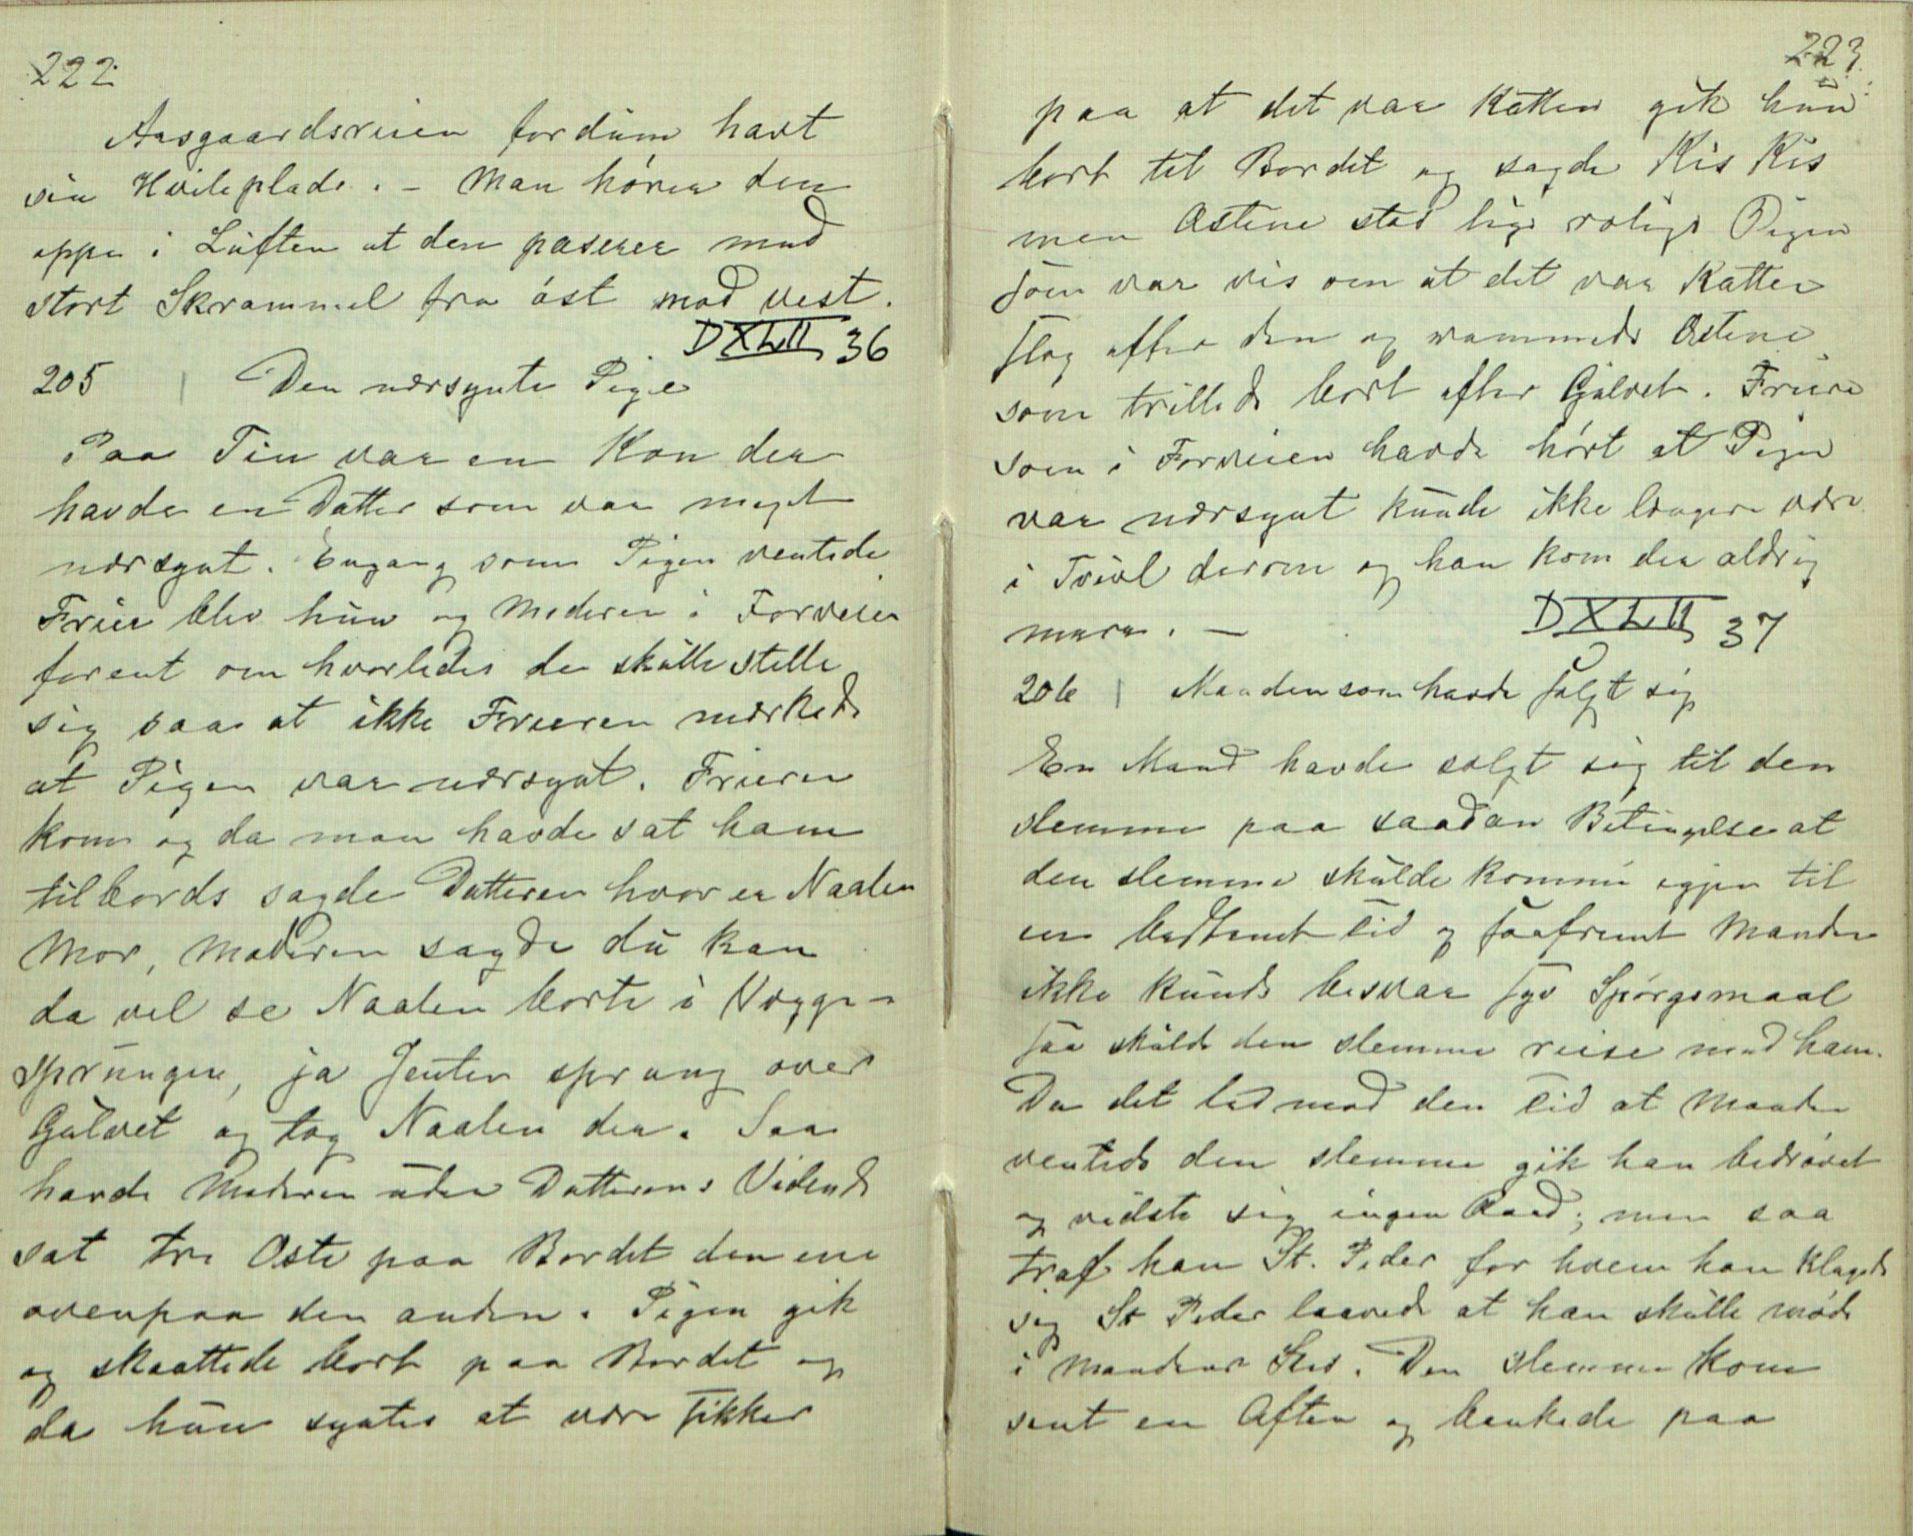 222
Aasgaardsreien fordum havt
sin Hvileplads. - Man hører den
oppe i Luften at den paserer med
stort Skrammel fra øst mod vest.
DXLII 36
205 | Den nærsynte Pige
Paa Tin var en Kone der
havde en Datter som var meget
nærsynt. Engang som Pigen ventede
Frier blev hun og Moderen i Forveien
forent om hvorledes de skulle stelle
sig saa at ikke Frieren mærkede
at Pigen var nærsynt. Frieren
kom og da man havde sat ham
tilbords sagde Datteren hvor er Naalen
Mor, Moderen sagde du kan
da vel se Naalen borte i Vægge-
sprungen, ja Jenten sprang over
Gulvet og tog Naalen der. Saa
havde Moderen uden Datterens Vidende
sat tre Oste paa Bordet den ene
ovenpaa den anden. Pigen gik
og skaattede bort paa Bordet og
da hun syntes at være sikker
223
paa at det var Katten gik hun
bort til Bordet og sagde Kis Kis
men Ostene stod lige rolige Pigen
som var vis om at det var Katten
slog efter den og rammede Ostene
som trillede bort efter Gulvet. Frieren
som i Forveien havde hørt at Pigen
var nærsynt kunde ikke længere være
i Tvivl derom og han kom der aldrig
mere. -
DXLII 37
206 | Manden som havde solgt sig
En Mand havde solgt sig til den
slemme paa saadan Betingelse at
den slemme skulde komme igjen til
en bestemt Tid og saafremt Manden
ikke kunde besvare syv Spørgsmaal
saa skulde den slemme reise med ham.
Da det led mod den Tid at Manden
ventede den slemme gik han bedrøvet
og vidste sig ingen Raad; men saa
traf han St. Peder for hvem han klagede
sig St Peder lovede at han skulle møde
i Mandens Sted. Den slemme kom
sent en Aften og bankede paa